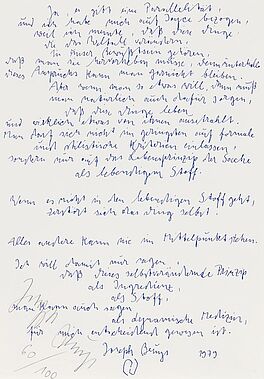 Ja, es gibt eine Parallelität,
und ich habe mich auf Joyce bezogen,
weil ich meinte, daß diese Dinge
die Welt verändern.
In unser Bewußtsein gehören,
daß man sie
dieses Anspruchs kann man garnicht bleiben.
Aber wenn man so etwas will, dann muß
man natürlich auch dafür sorgen,
daß die Dinge leben
und wirklich etwas von ihnen ausstrahlt.
Man darf sich nicht im geringsten auf formale
und stilistische Kriterien einlassen,
sondern nur auf das Lebensprinzip der Sache
als lebendigem Stoff.
Wenn es nicht in den lebendigen Stoff geht,
zerstört sich das Ding selbst.
Alles andere kann nie im Mittelpunkt stehen.
Ich will damit nur sagen,
daß dieses selbstverändernde Prinzip
als Ingredienz,
als Stoff,
man kann auch sagen
als dynamische Medizin,
für mich entscheidend gewesen ist.
Joseph Beuys 1979
Joseph Beuys
60/100